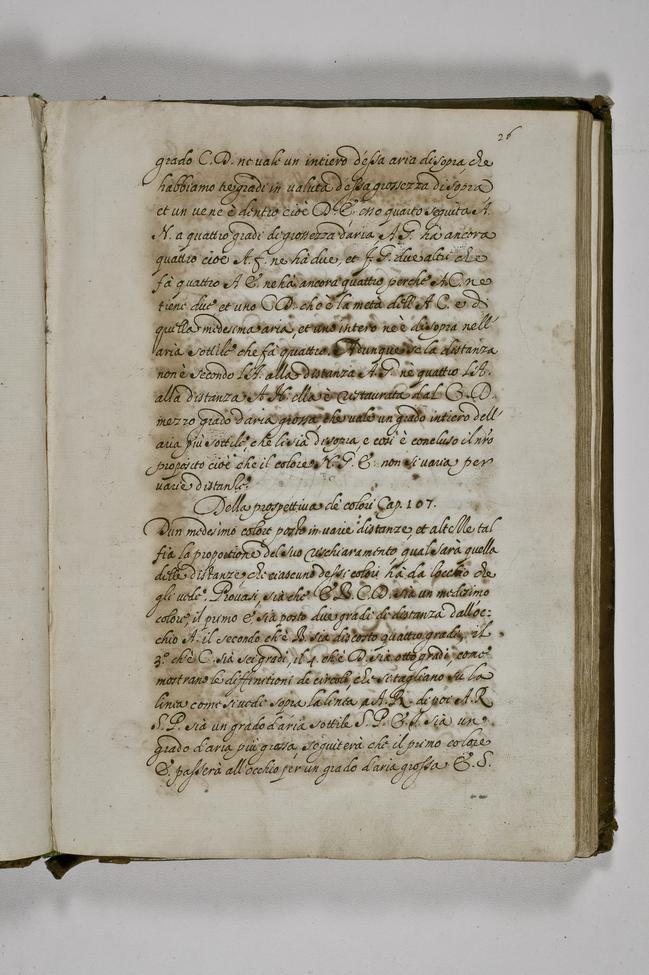 26
grado C. D. ne vale un intiero d'essa aria di sopra, che
habbiamo tre gradi in valuta d'essa grossezza di sopra
et un vene è dentro cioè D. E. esso quarto seguita A.
N. a quattro gradi di grossezza d'aria A G. hà ancora
quattro cioè A. f. ne hà due, et f. G. due altri che
fà quattro A E. ne hà ancora quattro perche A C. ne
tiene due et uno C D. che è la metà dell' A C. e di
quella medesima aria, et uno intero ne è di sopra nell'
aria sottile che fà quattro. Adunque se la distanza
non è secondo l'A. alla distanza A G. nè quattro l'A.
alla distanza A H. ella è restaurata dal C. D.
mezzo grado d'aria grossa che vale un grado intiero dell'
aria più sottile, che li sia di sopra, e così è concluso il nro
proposito cioè che il colore N. G. E. non si varia per
varie distanse.
Della prospettiva de colori Cap. 107.
D'un medesimo colore posto in varie distanze, et altezze tal
fia la proportione del suo rischiaramento qual sarà quella
delle distanze, che ciascuno d'essi colori hà da l'occhio che
gli vede. Provasi, sia che E. B. C. D. sia un medesimo
colore, il primo E sia posto due gradi di distanza dall'oc=
chio A. il secondo ch'è B. sia discosto quattro gradi, il
3.º ch'è C. sia sei gradi, il 4. ch'è D. sia otto gradi, come
mostrano le diffinitioni de circoli che si tagliano su la
linea come si vede sopra la linea A. R. di poi A. R
S. P. sia un grado d'aria sottile S. P. E. T. sia un
grado d'aria più grossa, seguiterà che il primo colore
E. passerà all'occhio per un grado d'aria grossa E. S.